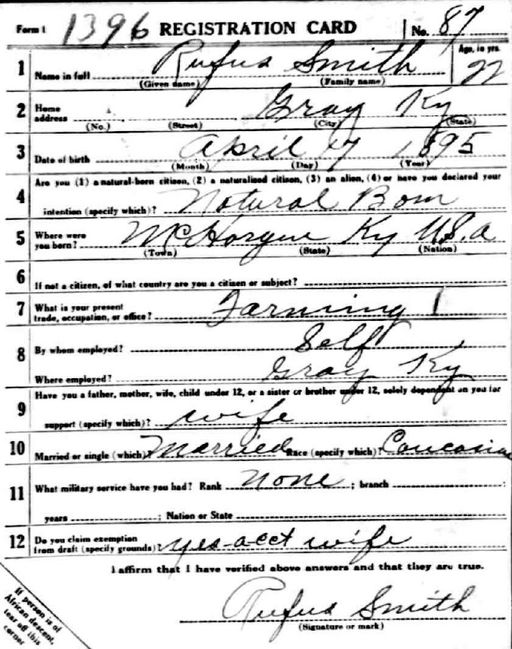 Form 1 1396 REGISTRATION CARD No. 87
1 Name in full Rufus Smith Age, in yrs. 22
(Given name) (Family name)
2 Home address Gray Ky
(No.) (Street) (City) (State)
3 Date of birth April 17 1895
(Month) (Day) (Year)
4 Are you (1) a natural-born citizen, (2) a naturalized citizen, (3) an alien, (4) or have you declared your
intention (specify which)? Natural Born
5 Where were you born? McHargue Ky U.S.a
(Town) (State) (Nation)
6 If not a citizen, of what country are you a citizen or subject?
7 What is your present trade, occupation, or office? Farming 1
8 By whom employed? Self
Where employed? Gray Ky
9 Have you a father, mother, wife, child under 12, or a sister or brother under 12, solely dependent on you for
support (specify which)? wife
10 Married or single (which)? Married Race (specify which)? Caucasian
11 What military service have you had? Rank none ; branch
years ; Nation or State
12 Do you claim exemption from draft (specify grounds)? yes-acct wife
I affirm that I have verified above answers and that they are true.
Rufus Smith
(Signature or mark)
If person is of
African descent,
tear off this
corner